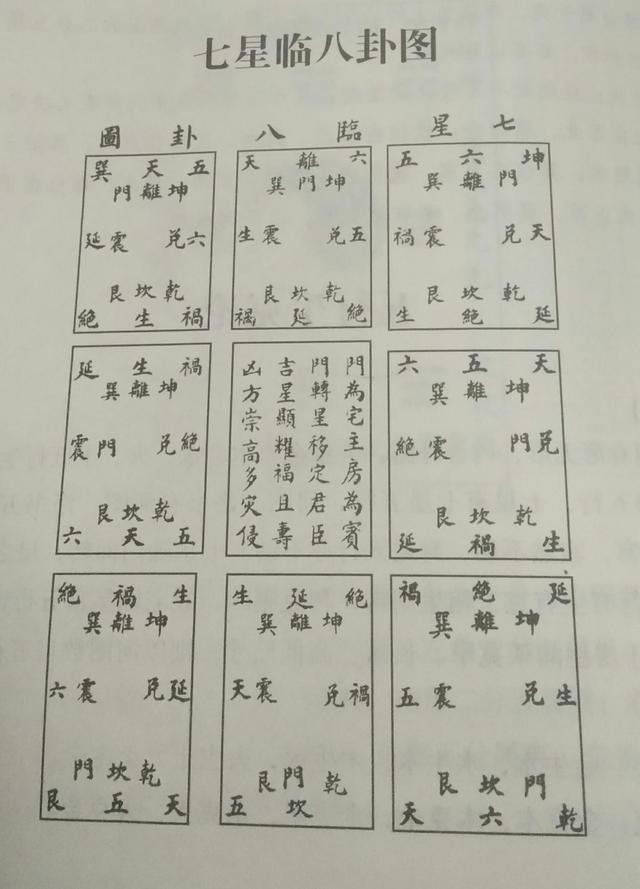 七星临八卦图
七星臨八卦圖
巽天五
門離坤
延震 兑六
艮坎乾
絕生禍
天離六
巽門坤
生震 兑五
艮坎乾
禍延絕
五六坤
巽離門
禍震 兑天
艮坎乾
生絕延
延生禍
巽離坤
震門 兑絕
艮坎乾
六天五
門為宅主房為賓
門轉星移定君臣
吉星顯耀福且壽
凶方崇高多灾侵
六五天
巽離坤
絕震 門兑
艮坎乾
延禍生
絕禍生
巽離坤
六震 兑延
門坎乾
艮五天
生延絕
巽離坤
天震 兑禍
艮門乾
五坎
禍絕延
巽離坤
五震 兑生
艮坎門
天六乾